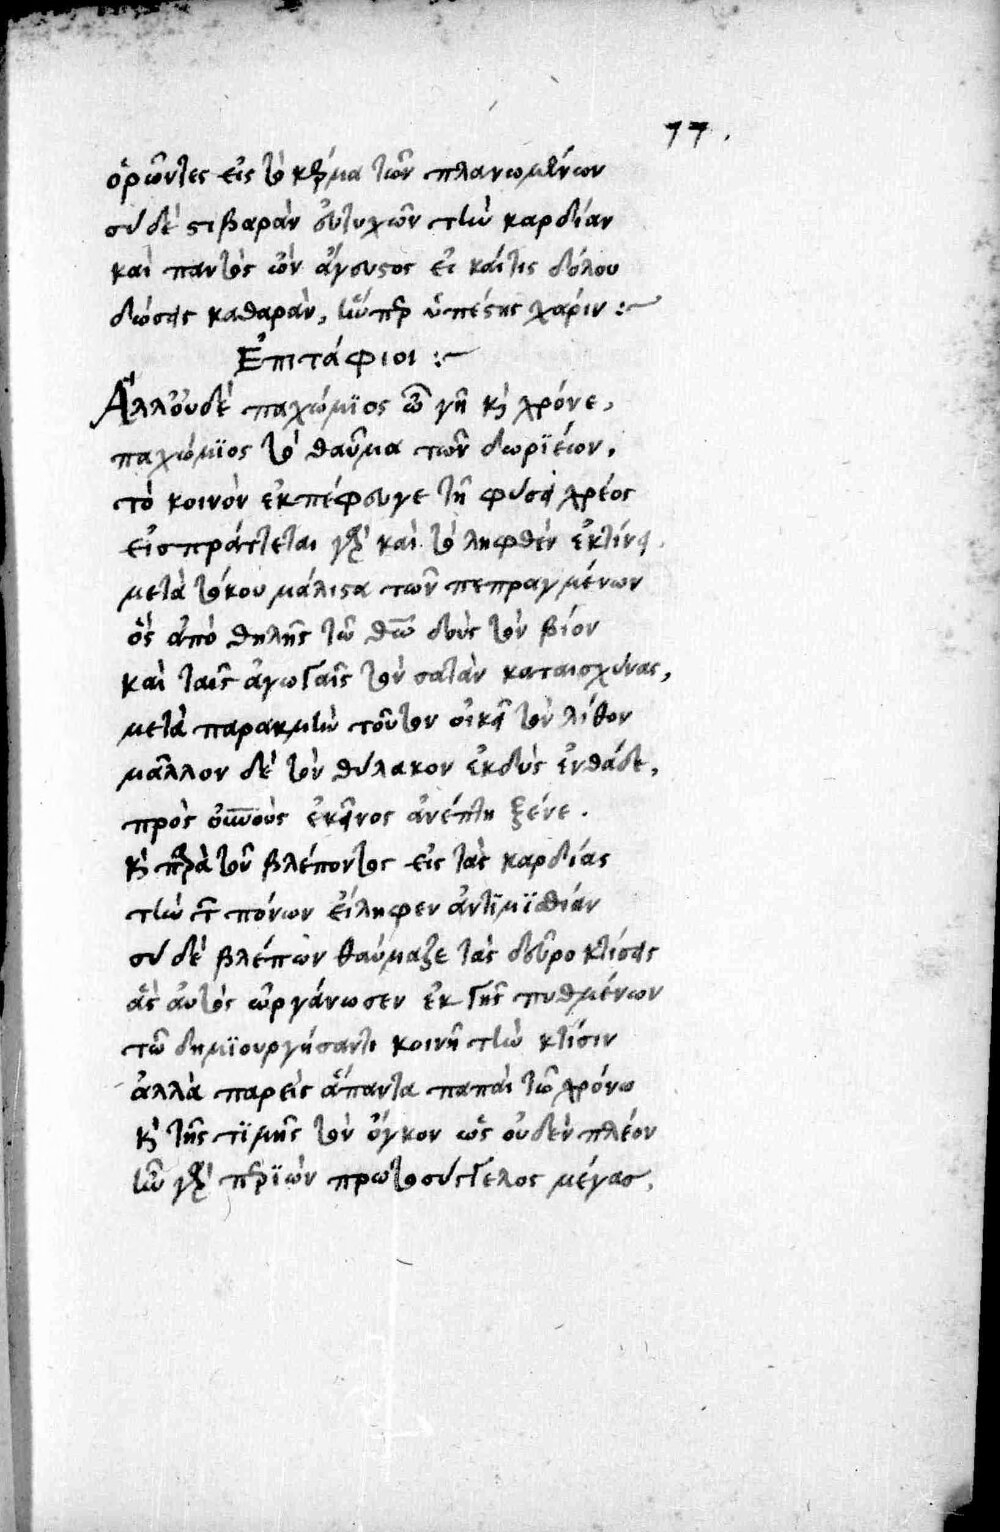 77.
ὁρῶντες εἰς τὸ κέρμα τῶν πλανωμένων
σὺ δὲ στιβαρὰν εὐτυχῶν τὴν καρδίαν
καὶ παντὸς ὢν ἄγευστος εἰ κἄτις δόλου
δώσεις καθαρὰν, ὧνπερ ὑπέστης χάριν :~
Ἐπιτάφιοι :~
Ἀλλ' οὐδὲ παχώμϊος ὦ γῆ κὶ χρόνε,
παχώμϊος τὸ θαῦμα τῶν δωρϊέων,
τὸ κοινὸν ἐκπέφευγε τῇ φύσει χρέος
εἰσπράττεται γὰρ καὶ τὸ ληφθὲν ἐκτίνει
μετὰ τόκου μάλιστα τῶν πεπραγμένων
ὃς ἀπὸ θηλῆς τῷ θῶ δοὺς τὸν βίον
καὶ ταῖς ἀγωγαῖς τὸν σατὰν καταισχύνας,
μετὰ παρακμὴν τοῦτον οἰκεῖ τὸν λίθον
μᾶλλον δὲ τὸν θύλακον ἐκδὺς ἐνθάδε,
πρὸς οὐνοὺς ἐκεῖνος ἀνέπτη ξένε.
κὶ παρὰ τοῦ βλέποντος εἰς τὰς καρδίας
τὴν τῶν πόνων εἴληφεν ἀντϊμϊσθίαν
σὺ δὲ βλέπων θαύμαζε τὰς δεῦρο κτίσεις
ἃς αὐτὸς ὠργάνωσεν ἐκ γῆς πυθμένων
τῶ δημϊουργήσαντι κοινῇ τὴν κτίσιν
ἀλλὰ παρεὶς ἅπαντα παπαὶ τῷ χρόνω
κὶ τῆς τϊμῆς τὸν ὄγκον ὡς οὐδὲν πλέον
ἦν γὰρ περϊὼν πρωτοσύγγελος μέγας,